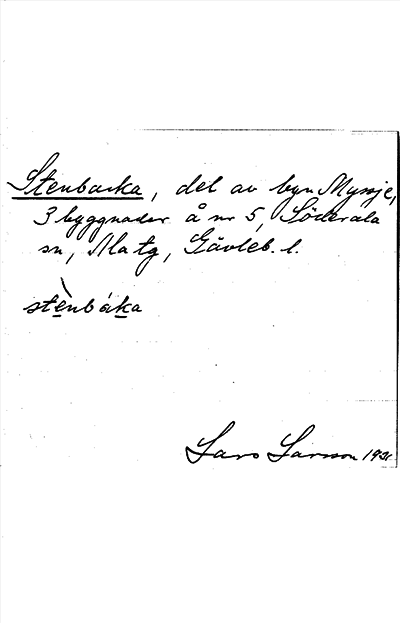 Stenbacka, del av byn Myssje,
3 byggnader å nr 5, Söderala
sn, Ala tg, Gävleb. l.
stènbáka
Lars Larsson 1931